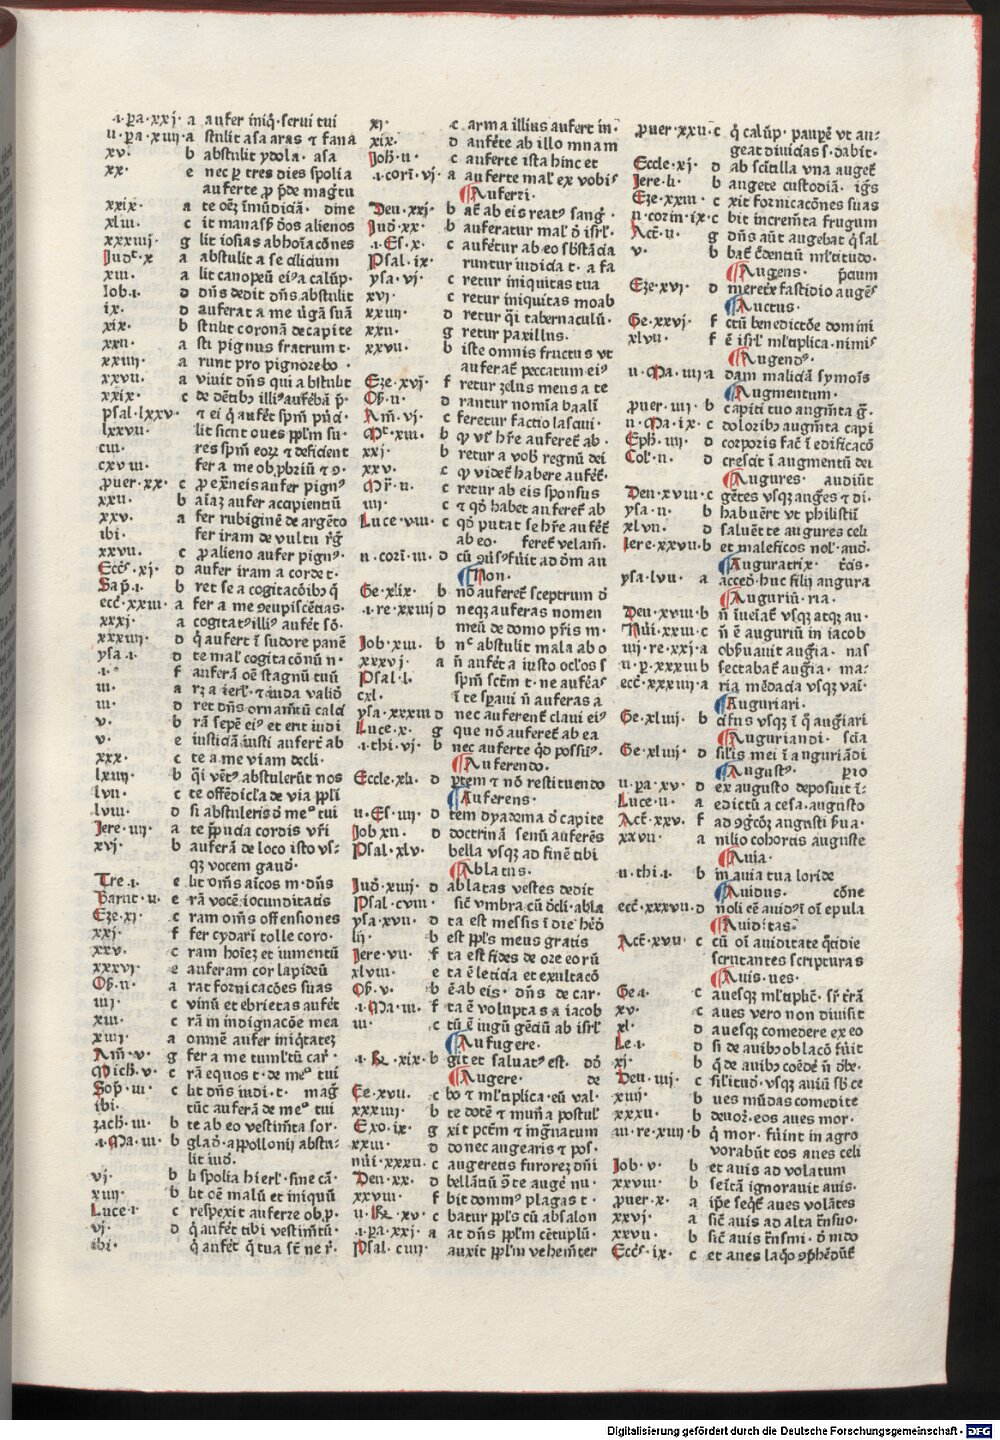 .i.p̄a.xxj. a aufer iniq̄.serui tui
ii.p̄a.xiiij.a stulit asa aras ⁊ fana
xv. b abstulit ydola. asa
xx. e nec p̲ tres dies spolia
auferte p̲ p̄de maḡtu
xxix. a te oēz īmūdiciā. dine
xliii. c it manasses d̄os alienos
xxxiiij. g lit iosias abhoīacōnes
Judᶜ.x a abstulit a se cilicium
xiii. a lit canopeū eiꝰa calūp.
Iob.i. d dn̄s dedit dn̄s abstulit
ix. d auferat a me ūgā suā
xix. b stulit coronā de capite
xxii. a sti pignus fratrum t.
xxiiij. a runt pro pignore bo.
xxvii. a viuit dn̄s qui abstulit
xxix. c de dētibꝰ illiꝰ aufēbā p̄.
psal.lxxv. ⁊ ei q̄ aufēt sp̄m p̄nci.
lxxvii. lit sicut oues ppl̄m su.
ciii. res sp̄m eoꝝ ⁊ deficient
cxviii. fer a me obpbriū ⁊ ꝯ.
puer.xx. c p exn̄eis aufer pignꝰ
xxii. b aīaz aufer accipientiū
xxv. a fer rubiginē de argēto
ibi. fer iram de vultu r̄ḡ
xxvii. c p alieno aufer pignꝰ.
Eccs̄.xj. d aufer iram a corde t.
Sap̄.i. b ret se a cogitacōibꝰ q̄
ecc̄.xxiii. a fer a me ꝯcupiscētias.
xxxj. a cogitatꝰ illiꝰ aufēt sō.
xxxiiij. d q̄ aufert ī sudore panē
ysa.i. d te mal̄ cogitacōnū n.
.i. f auferā oē stagnū tuū
iii. a rz a ierl̄.⁊ iuda valid̄
iii. d ret dn̄s ornamtū calci
v. b rā sepē eiꝰ et erit indi
v. e iusticiā iusti aufert̄ ab
xxx. c te a me viam decli.
lxiiij. b q̄i vētꝰ abstulerūt nos
lvii. c te offēdicl̄a de via ppl̄i
lviii. d si abstuleris d̄ meᵒ tui
Jere.iiij. a te p̄pucia cordis vr̄i
xvj. b auferā de loco isto vs-
qꝫ vocem gaud̄.
Tre.i. e lit om̄s aīcos m.dn̄s
Baruc.ii. e rā vocē iocunditatis
Eze.xj. c ram om̄s offensiones
xxj. f fer cydarī tolle coro.
xxv. c ram hoīez et iumentū
xxxvj. e auferam cor lapideū
Os̄.ii. a rat fornicacōes suas
iiij. c vinū et ebrietas aufēt
xiii. c rā m indignacōe mea
xiiij. a omnē aufer iniq̄tatez
Am̄.v. g fer a me tumltū car̄.
Mich̄.v. c rā equos t.de meᵒ tui
Sop̄.iii. c lit dn̄s iudi.t. maḡ
ibi. tūc auferā de meᵒ tui
zach̄.iii. b te ab eo vestimta sor.
.i.Ma.iii. b glad̄.appollonij abstu-
lit iud̄.
vj. b li spolia hierl̄.sine cā.
xiiij. b lit oē malū et iniquū
Luce.i. c respexit auferze ob.p.
vj. d q̄ aufēt tibi vestimtū.
ibi. q̄ aufēt q̄ tua st̄ ne r̄.
xj. c arma illius aufert in.
xix. d aufēte ab illo mnam
Joh̄.ii. c auferte ista hinc et
.i.corī.vj. a auferte mal̄ ex vobiꝰ
Auferri.
Deu.xxj. b at̄ ab eis reatꝰ sanḡ.
Jud̄.xx. b auferatur mal̄ d̄ isrl̄.
.i.Es̄.x. c aufētur ab eo sb̄stācia
Psal.ix. runtur iudicia t. a fa
ysa.vj. c retur iniquitas tua
xvj. c retur iniquitas moab
xxiij. d retur q̄i tabernaculū.
xxii. g retur paxillus.
xxvii. b iste omnis fructus vt
auferat̄ peccatum eiꝰ
Eze.xvj. f retur zelus meus a te
Os̄.ii. d rantur nomīa baali
Am̄.vj. c feretur factio lasciui.
Mt̄.xiii. b qͦ vr̄ hr̄e auferet̄ ab.
xxj. b retur a vob̄ regnū dei
xxv. c qͦ videt̄ habere aufēt̄.
Mr̄.ii. c retur ab eis sponsus
iiij. c ⁊ qd̄ habet auferet̄ ab
Luce.viii. c qd̄ putat se hr̄e aufēt̄
ab eo. feret̄ velam̄.
ii.corī.iii. d cū ꝯūsꝰ fūit ad d̄m au
Non.
Ge.xlix. b nō auferet̄ sceptrum d̄
.i.re.xxiiij d neqꝫ auferas nomen
meū de domo pr̄is m.
Job.xiii. b nᶜ abstulit mala ab o
xxxvj. a n̄ aufēt a iusto ocl̄os s
Psal.l. sp̄m sc̄tm t. ne aufēas
cxl. ī te spaui n̄ auferas a
ysa.xxxiii d nec auferent̄ claui eiꝰ
Luce.x. g que nō auferet̄ ab ea
.i.thi.vj. b nec auferte qd̄ possiꝰ.
Auferendo.
Eccle.xli. d ptem ⁊ nō restituendo
Auferens.
ii.Es̄.iiij. d tem dyadoma d̄ capite
Job.xii. d doctrinā senū auferēs
Psal.xlv. bella vsqꝫ ad finē tibi
Ablatus.
Jud̄.xiiij. d ablatas vestes dedit
Psal.cviii. sic̄ vmbra cū d̄cli.abla
ysa.xvii. d ta est messis ī die hēd̄
liij. b est ppl̄s meus gratis
Jere.vii. f ta est fides de oze eorū
xlviii. e ta ē leticia et exultacō
Os̄.v. b ē ab eis. dn̄s de car.
.i.Ma.iii. f ta ē voluptas a iacob
iii. c tū ē iugū gēciū ab isrl̄
Aufugere.
.i.R̄.xix. b git et saluatꝰ est. dō
Augere. de
Ge.xvii. c bo ⁊ ml̄tiplica.eū val.
xxxiiij. b te dotē ⁊ mun̄a postul̄
Exo.ix. g xit pctm̄ et ingnatum
xxiii. d donec augearis ⁊ pos.
nūi.xxxii. c augeretis furorez dn̄i
Deu.xx. d bellātiū ꝯ te augē nu.
xxviii. f bit dominꝰ plagas t.
ii.R̄.xv. c batur ppl̄s cū absalon
.i.pa.xxj. a at dn̄s ppl̄m cētuplū.
Psal.ciiij. auxit ppl̄m vehemter
puer.xxii. c q̄ calūp. paupē vt au-
geat diuicias s.dabit.
Eccle.xj. d ab scītilla vna auget̄
Jere.li. b augete custodiā. igs̄
Eze.xxiii. c xit fornicacōnes suas
ii.corin.ix. c bit incremta frugum
Act̄.ii. g dn̄s aūt augebat q̄ sal
v. b bat̄ c̄dentiū ml̄titudo.
Augens. p̄cium
Eze.xvj. d meret̄x fastidio augēs
Auctus.
Ge.xxvj. f ctū benedictōe domini
xlvii. f ē isrl̄ ml̄tiplica.nimiꝰ
Augendꝰ.
ii.Ma.iiij. a dam maliciā symoīs
Augmentum.
puer.iiij. b capiti tuo augmta ḡ.
ii.Ma.ix. c doloribꝰ augmta capi
Eph̄.iiij. d corporis fac̄ ī edificacō
Col̄.ii. d crescit ī augmentū dei
Augures. audiūt
Deu.xviii. c gētes vsqꝫ augres ⁊ di.
ysa.ii. b habuert̄ vt philistii
xlvii. d saluēt te augures celi
Jere.xxvii. b et maleficos nol̄.aud̄.
Auguratrix. t̄cis.
ysa.lvii. a acced̄.huc filij augura
Auguriū.ria.
Deu.xviii. b n̄ īueiat̄ vsqꝫ atqꝫ au.
Nūi.xxiii. c n̄ ē auguriū in iacob
iiij.re.xxj. a obs̄uauit aug̃ia. nas
ii.p.xxxiii. b sectabat̄ aug̃ia. ma-
ecc̄.xxxiiij. a ria mēdacia vsqꝫ vai.
Auguriari.
Ge.xliiij. b cifus vsqꝫ ī q̄ aug̃iari
Auguriandi. scīa
Ge.xliiij. d silis mei ī anguriādi
Augustꝰ. pio
ii.pa.xv. d ex augusto deposuit ī-
Luce.ii. a edictū a cesa.augusto
Act̄.xxv. f ad ꝯḡcōz augusti s̄ua.
xxvii. a milio cohortis auguste
Auia.
ii.thi.i. b in auia tua loride
Auidus. cōne
ecc̄.xxxvii. d noli eē auidꝰ ī oī epula
Auiditas.
Act̄.xvii. c cū oī auiditate q̄tidie
scrutantes scripturas
Auis.ues.
Ge.i. c auesqꝫ ml̄tiplic̄.sr̄ t̄rā
xv. c aues vero non diuisit
xl. d auesqꝫ comedere ex eo
Le.i. d si de auibꝰ oblacō fūit
xj. b q̄ de auibꝰ coēdē n̄ d̄be.
Deu.iiij. c sil̄itud̄.vsqꝫ auiū sb̄ ce
xiiij. b ues mūdas comedite
xxxii. b deuoz̄.eos aues mor.
iii.re.xiiij. b q̄ mor. fūint in agro
vorabūt eos aues celi
Job.v. b et auis ad volatum
xxviii. b semitā ignorauit auis.
puer.x. a ip̄e seqt̄ aues volātes
xxvj. a sic̄ auis ad alta t̄nsuo.
xxvii. b sic̄ auis t̄nsmi. d̄ nido
Eccs̄.ix. c et aues laqͦ ꝯp̄hēdūt̄
Digitalisierung gefördert durch die Deutsche Forschungsgemeinschaft - DFG